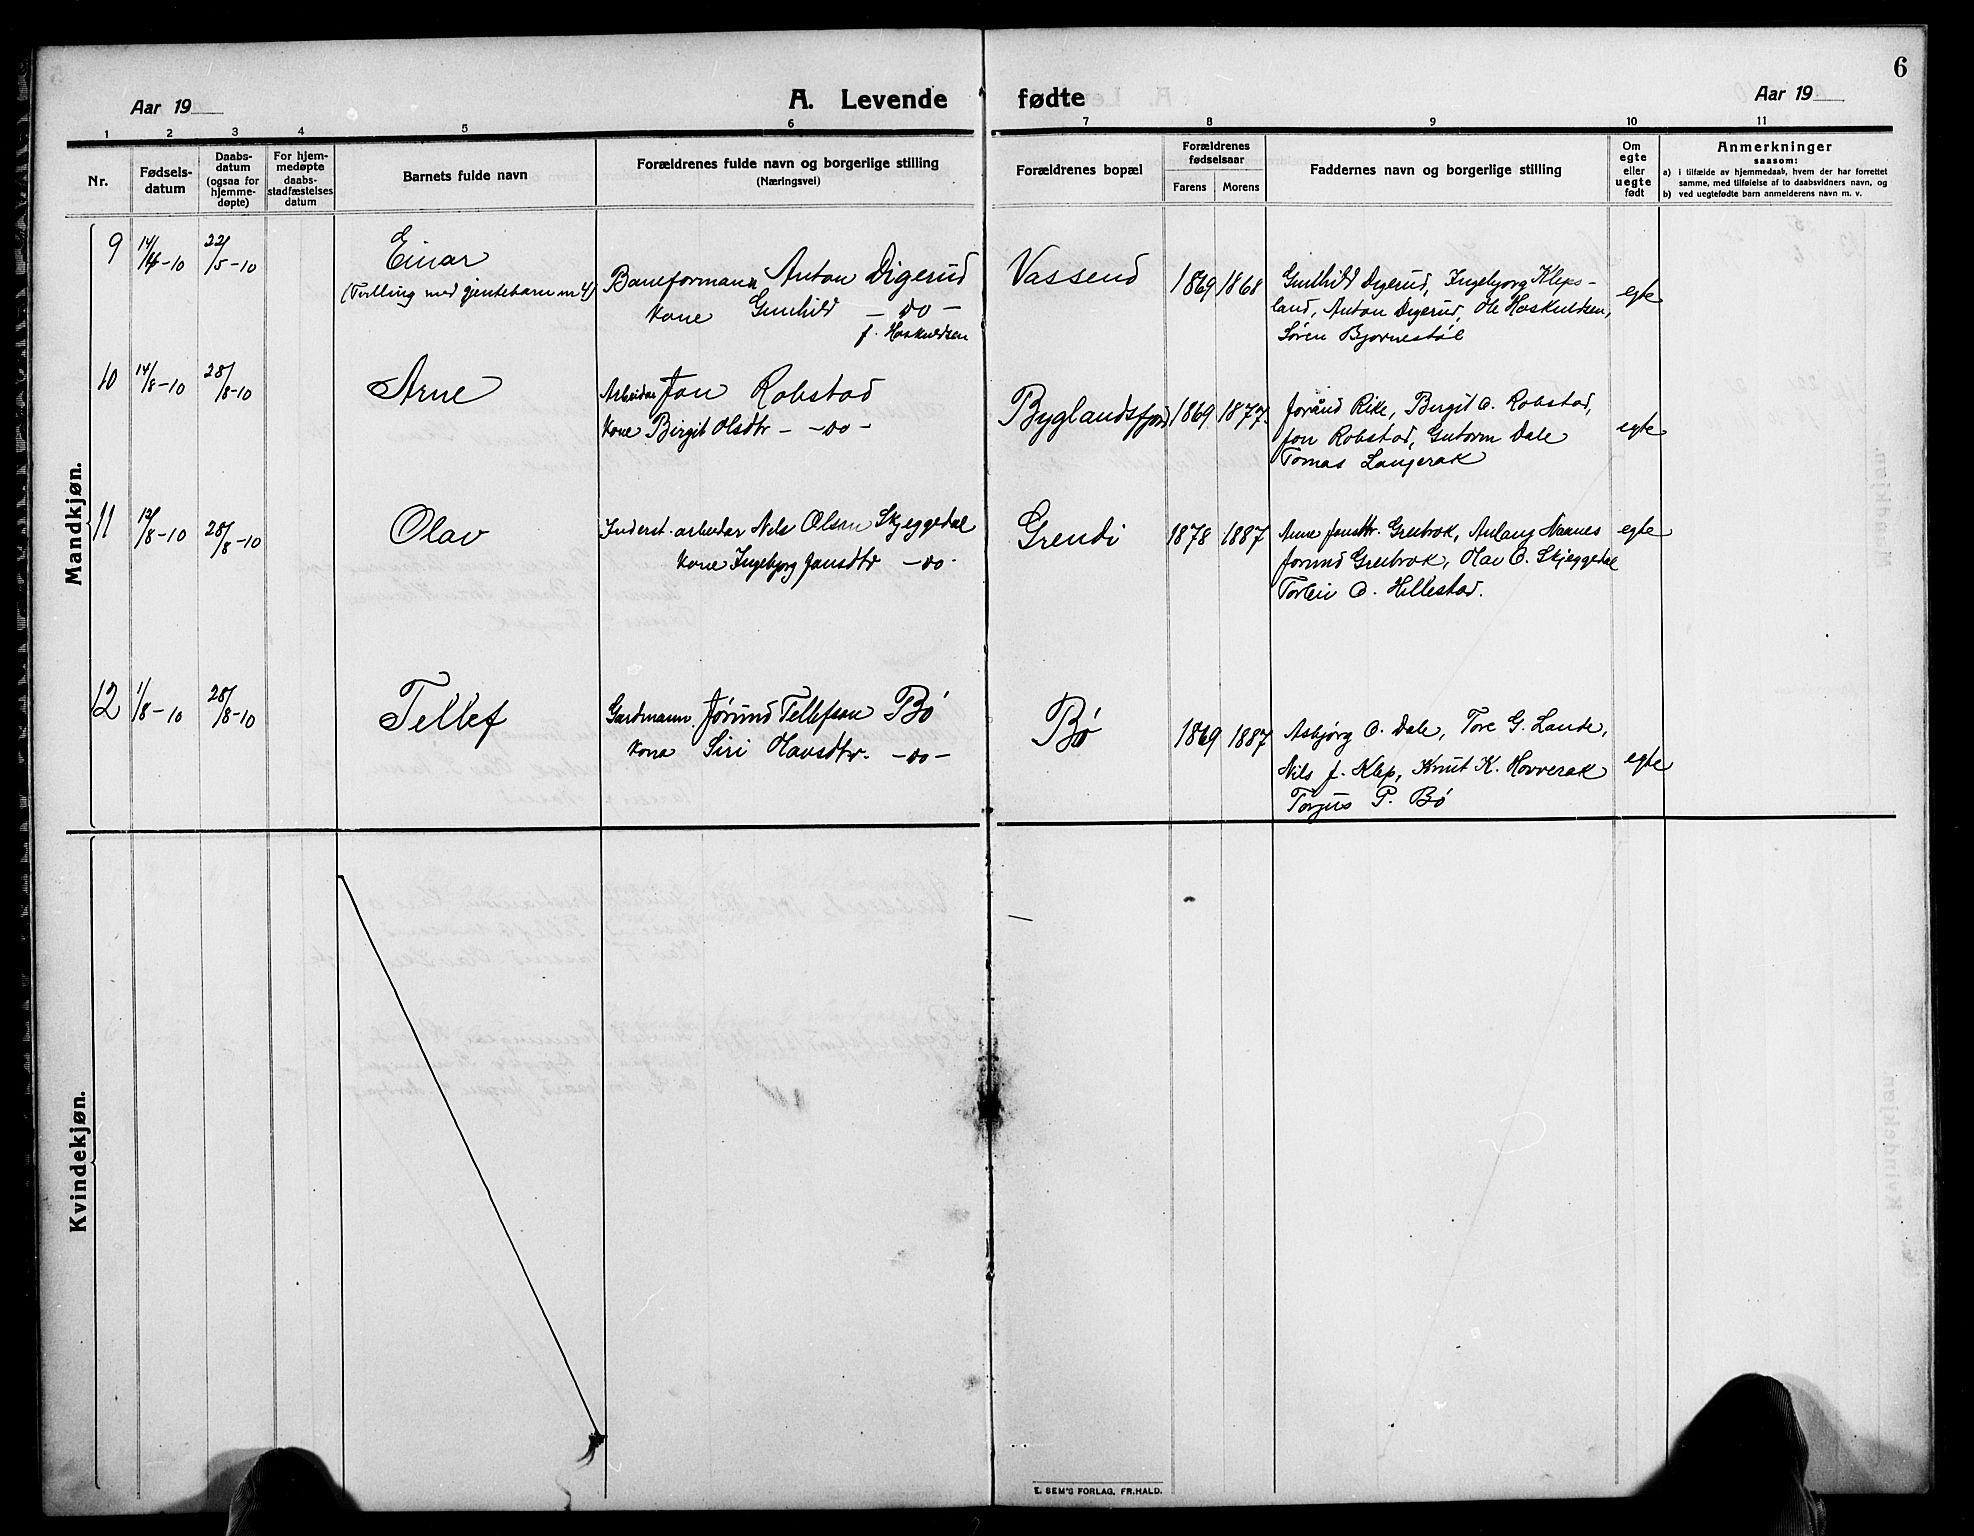 6
Aar 19
A. Levende fødte
Aar 19
1 2 3 4 5 6 7 8 9 10 11
Nr.
Fødsels-
datum
Daabs-
datum
(ogsaa for
hjemme-
døpte)
For hjem-
medøpte
daabs-
stadfæstelses
datum
Barnets fulde navn
Forældrenes fulde navn og borgerlige stilling
(Næringsvei)
Forældrenes bopæl
Forældrenes
fødselsaar
Farens Morens
Faddernes navn og borgerlige stilling
Om
egte
eller
uegte
født
Anmerkninger
saasom:
a) i tilfælde av hjemmedaab, hvem der har forrettet
samme, med tilføielse af to daabsvidners navn, og
b) ved uegtefødte barn anmelderens navn m. v.
Mandkjøn.
9 14/4-10 22/5-10
Einar
(Tvilling med gjentebarn nr 4)
Baneformann Anton Digerud
kone Gunhild -do-
f. Hoskuldsen
Vassend
1869 1868
Gunhild Digerud, Ingebjorg Kleps-
land, Anton Digerud, Ole Hoskuldsen,
Søren Bjornestøl
egte
10 14/8-10 28/8-10
Arne
Arbeidar Jon Robstad
kone Birgit Olsdtr - -do-
Byglandsfjord
1869 1877.
Jorånd Rike, Birgit O. Robstad,
Jon Robstad, Gutorm Dale
Tomas Langerak
egte
11 12/8-10 28/8-10
Olav
Inderst. arbeidar Nils Olson Skjeggedal
kone Ingebjorg Jonsdtr -do-
Grendi
1878 1887
Anne Jonsdtr. Grenbrok, Anlaug Naanes
Jorund Grenbrok, Olav O. Skjeggedal
Torleiv O. Hillestad.
egte
12 1/8-10 28/8-10
Tellef
Gardmann Jørund Tellefson Bø
kona Siri Olavsdtr. -do-
Bø
1869 1887
Asbjørg O. Dale, Tore G. Lande,
Nils J. Klep, Knut K. Hovverak
Torjus P. Bø
egte
Kvindekjøn.
E. SEM'S FORLAG, FR.HALD.